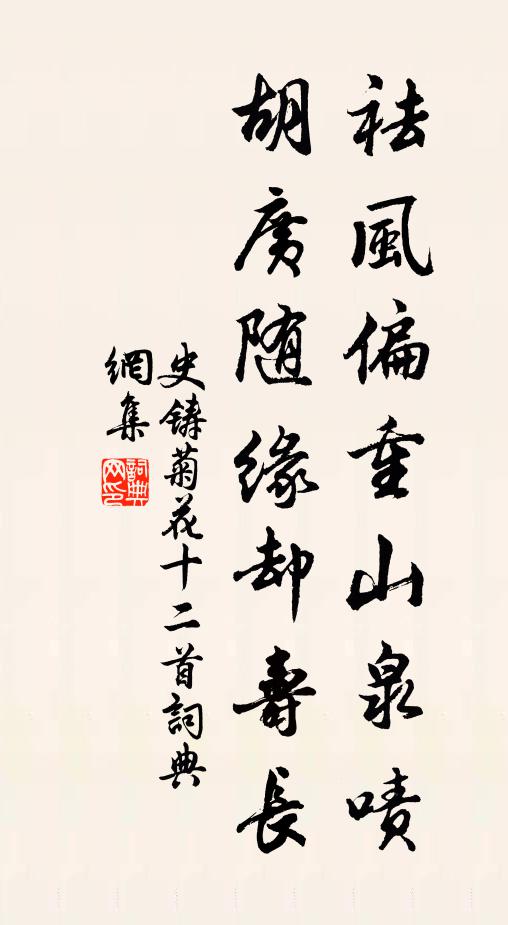 祛風偏重山泉嘖
胡廣随緣却壽長
史鑄菊花十二首詞典
網集
詞典
网印